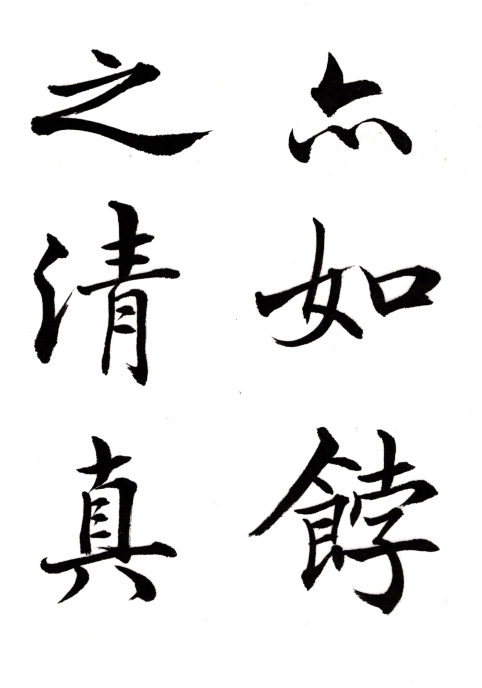 亦如餑
之清真